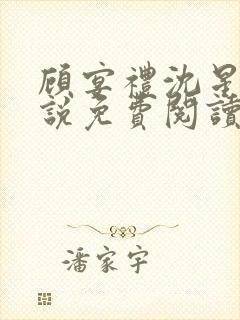 顧宴禮沈星
說免費閱讀
潘家宇